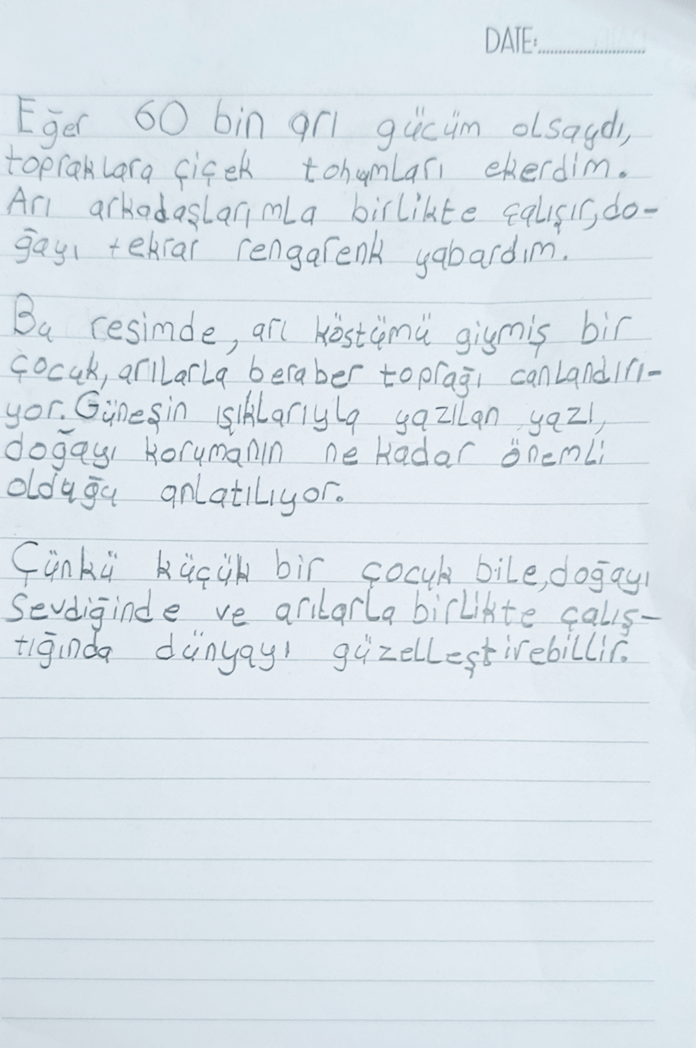 DATE:
Eğer 60 bin arı gücüm olsaydı,
topraklara çiçek tohumları ekerdim.
Arı arkadaşlarımla birlikte çalışır, do-
ğayı tekrar rengarenk yabardım.
Bu resimde, arı köstümü giymiş bir
çocuk, arılarla beraber toprağı canlandırı-
yor. Güneşin ışıklarıyla yazılan yazı,
doğayı korumanın ne kadar önemli
olduğu anlatılıyor.
Çünkü küçük bir çocuk bile, doğayı
Sevdiğinde ve arılarla birlikte çalış-
tığında dünyayı güzelleştirebillir.